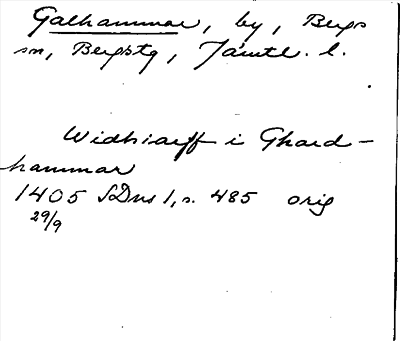 Galhammar, by, Bergs
sn, Bergstg, Jämtl. l.
Widhiarff i Ghard-
hammar
1405 SDns 1, s. 485 orig
29/9